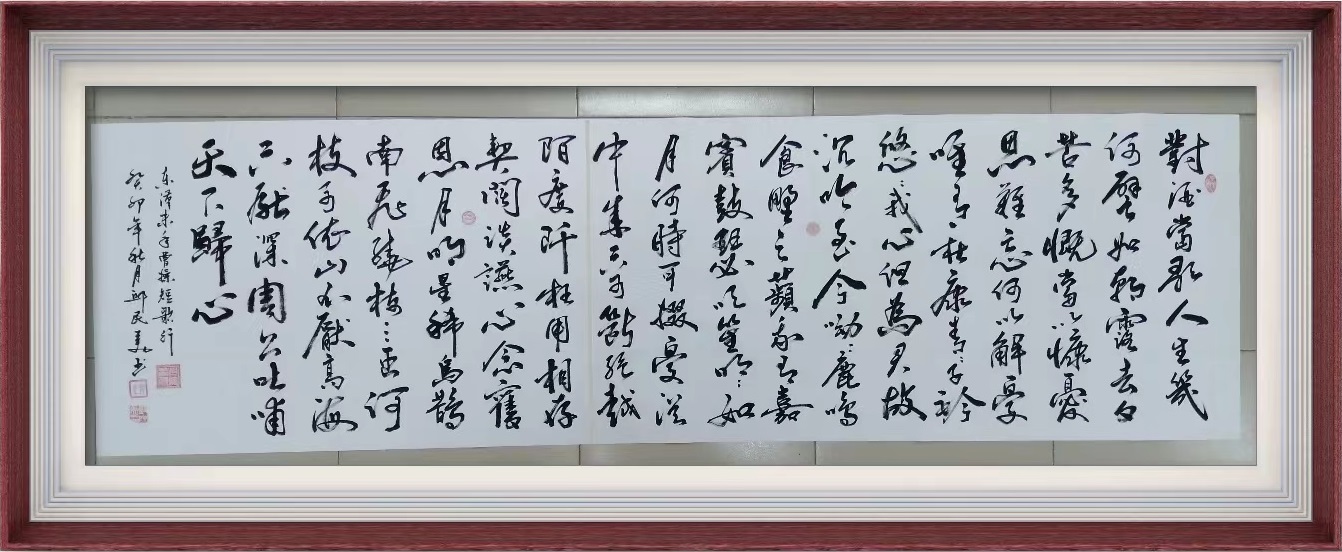 對酒當歌人生幾
何譬如朝露去日
苦多慨當以慷憂
思難忘何以解憂
唯有杜康青〻子衿
悠〻我心但為君故
沉吟至今呦〻鹿鳴
食野之蘋我有嘉
賓鼓瑟吹笙明〻如
月何時可掇憂從
中來不可斷絕越
陌度阡枉用相存
契闊談讌心念舊
恩月明星稀烏鵲
南飛繞樹三匝何
枝可依山不厭高海
不厭深周公吐哺
天下歸心
东汉末年曹操短歌行
癸卯年秋月民美书